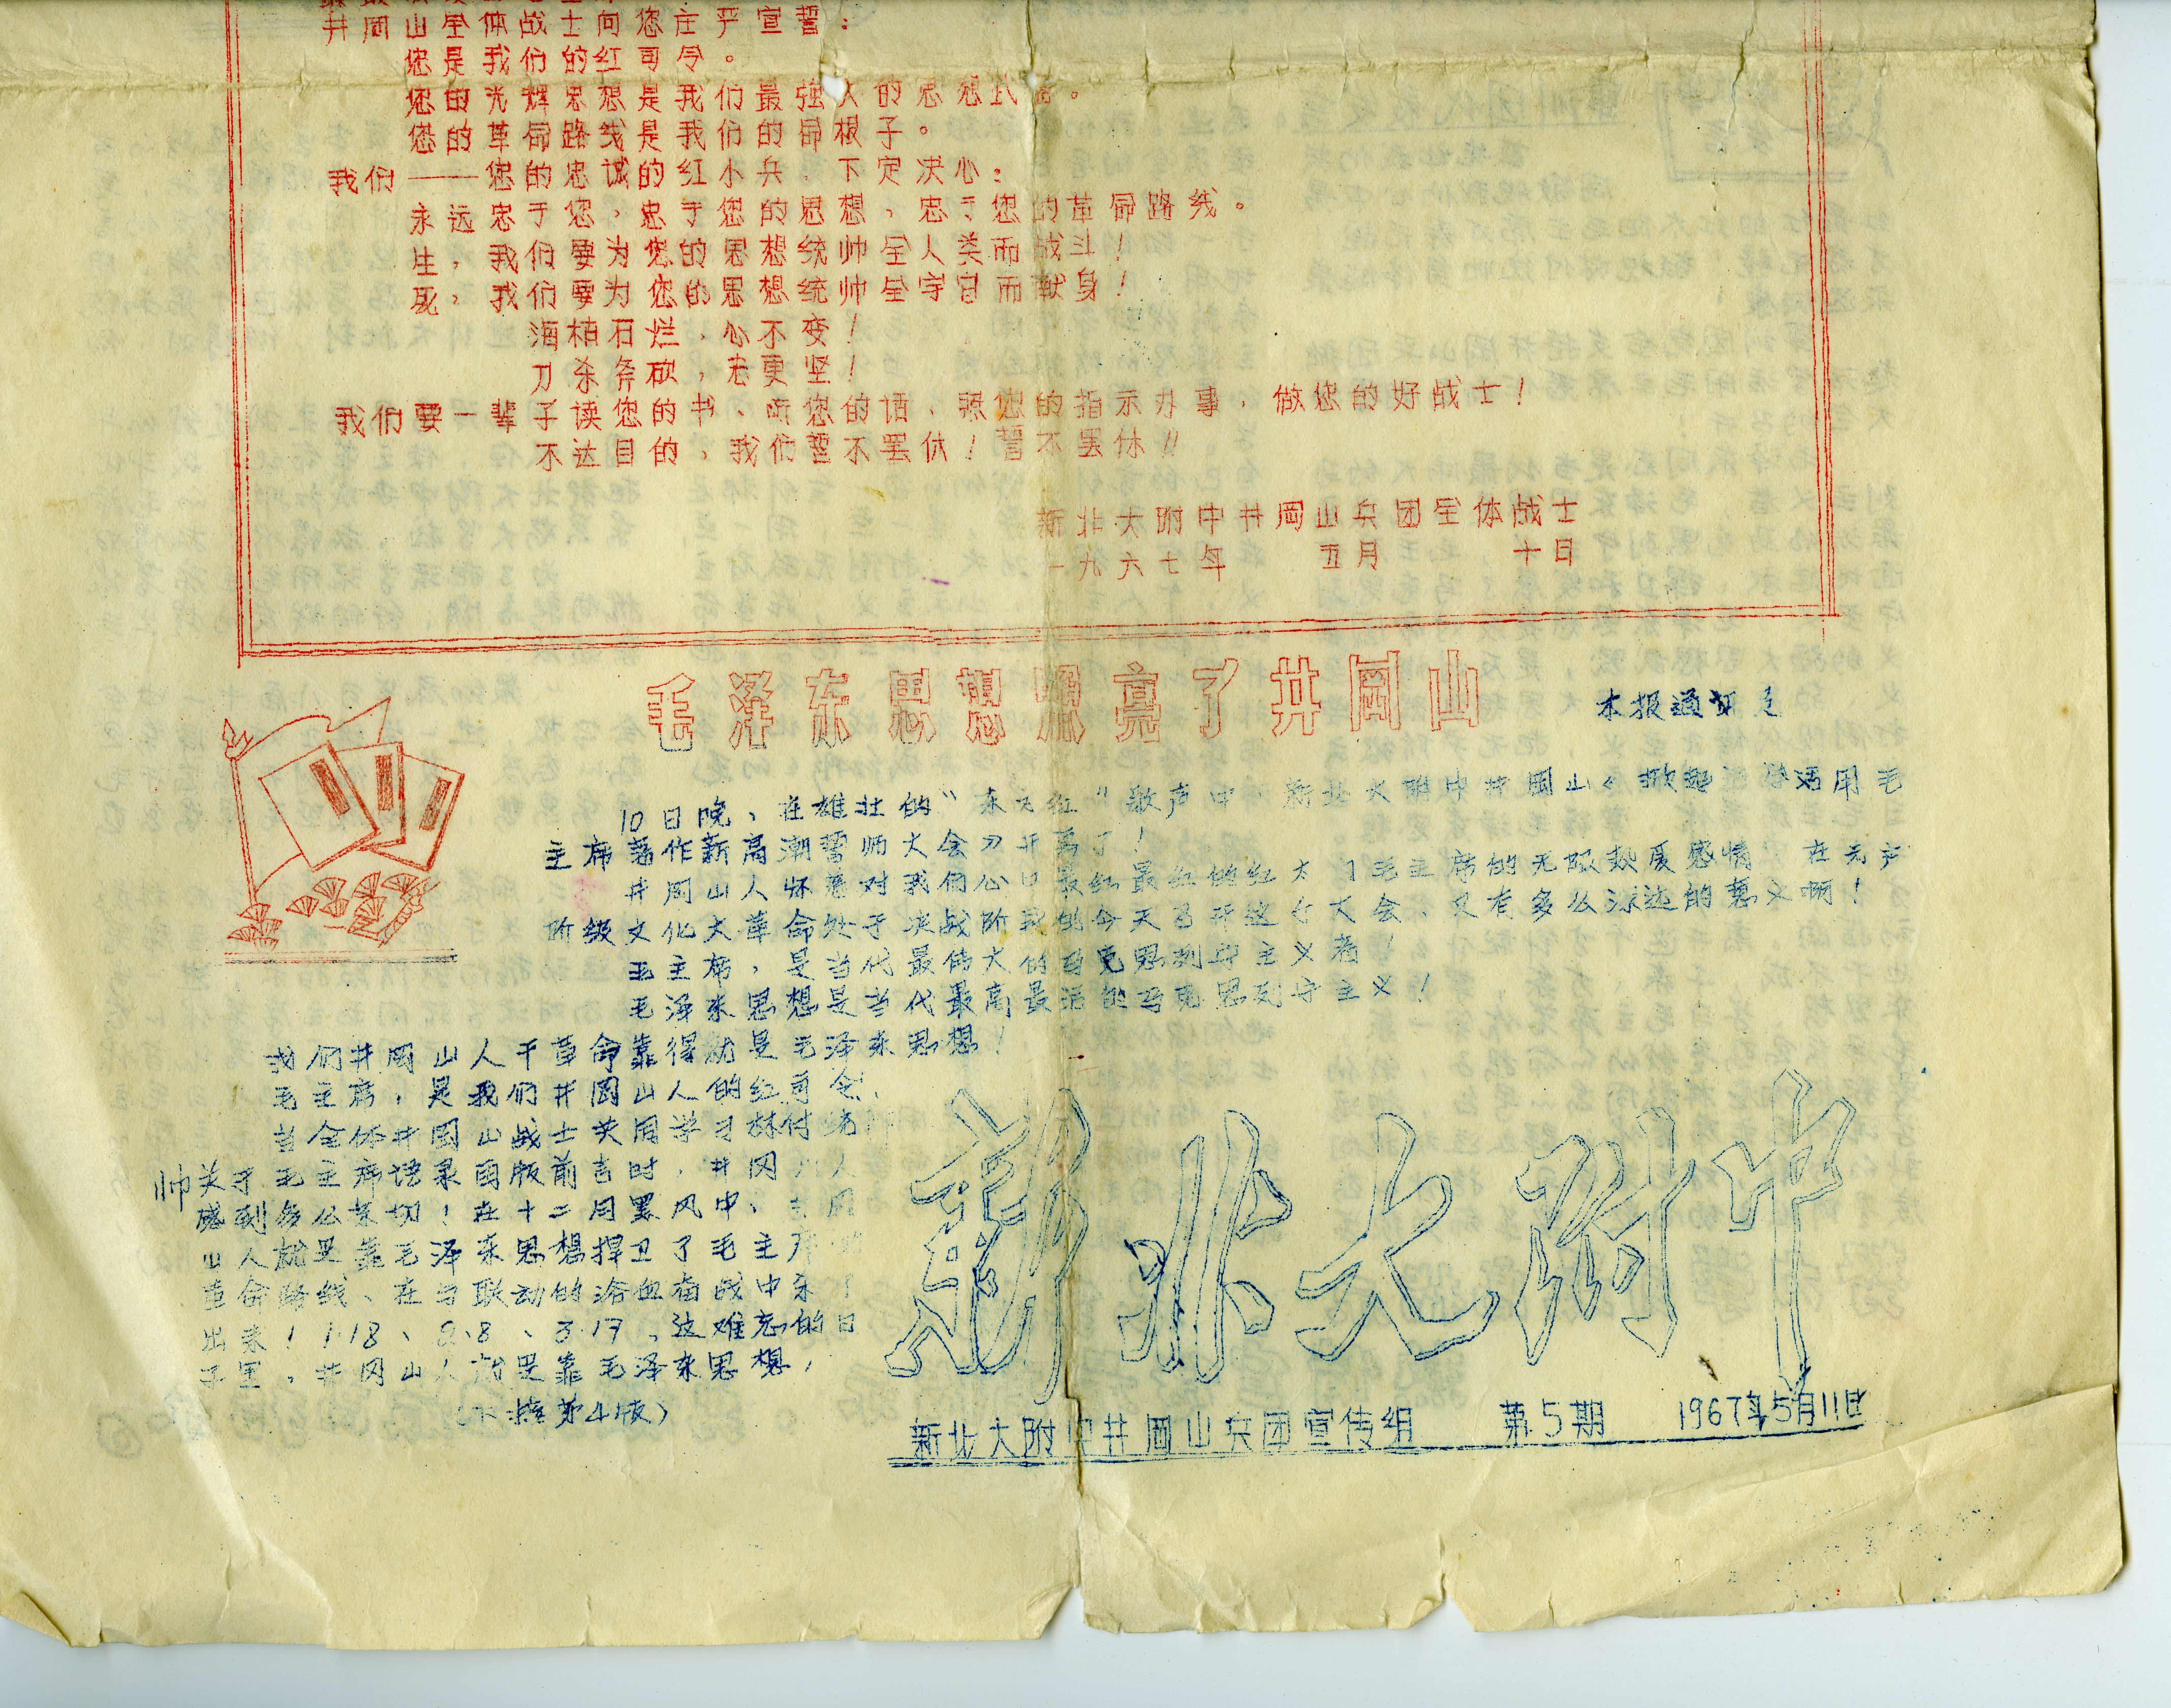 井岡山全体战士向您庄严宣誓：
您是我们的红司令。
您的光辉思想是我们最强大的思想武器。
您的革命路线是我们的命根子。
我们——您的忠诚的红小兵，下定决心：
永远忠于您，忠于您的思想，忠于您的革命路线。
生，我们要为您的思想统帅全人类而战斗！
死，我们要为您的思想统帅全宇宙而献身！
海枯石烂，心不变！
刀杀斧砍，志更坚！
我们要一辈子读您的书、听您的话、照您的指示办事，做您的好战士！
不达目的，我们誓不罢休！誓不罢休！！
新北大附中井岡山兵团全体战士
一九六七年 五月 十日
毛泽东思想照亮了井岡山
本报通讯
10日晚、在雄壮的“东方红”歌声中，新北大附中井岡山《掀起 活用毛
主席著作新高潮誓师大会 开 了！
井岡山人怀着对我们心 最红最红的红太 毛主席的无限热爱感情 在无产
阶级文化大革命处于决战阶 今天召开这个大会，又有多么深远的意义啊！
毛主席，是当代最伟大的马克思列宁主义者！
毛泽东思想是当代最高最活的马克思列宁主义！
我们井岡山人干革命靠得就是毛泽东思想！
毛主席，是我们井岡山人的红司令！
当全体井岡山战士共同学习林付统
帅关于毛主席语录再版前言时，井冈 人
感到多么亲切！在十二月黑风中、 岡
山人就是靠毛泽东思想捍卫了毛主席
革命路线、在与联动的浴血奋战中杀了
出来！1·18、2·8、3·17、这难忘的日
子里，井冈山人就是靠毛泽东思想，
（下接第4版）
新北大附中
新北大附中井岡山兵团宣传组 第5期 1967年5月11日